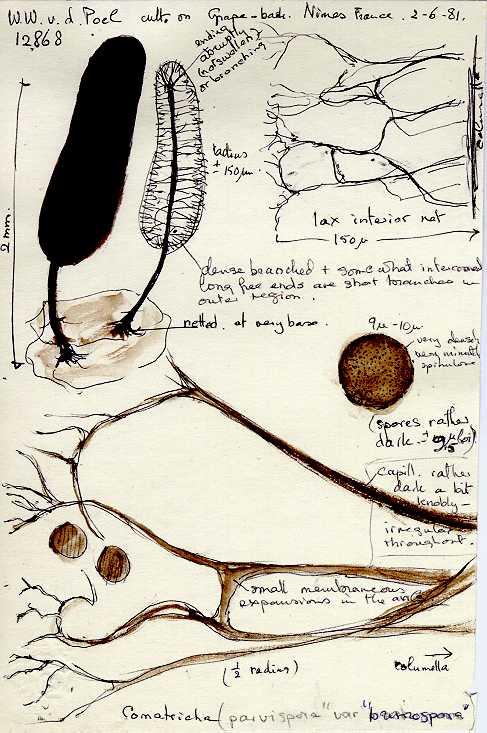 W.W. v. d. Poel cult. on Grape-back. Nîmes France. 2-6-81.
12868
ending
abruptly
(not swollen)
or branching
radius
± 150µ
2 mm.
columella
lax interior net
150µ
dense branched + somewhat
long free ends are short branches in
outer region.
netted at very base.
9µ - 10µ
very densely
very minutely
spinulose
(spores rather
dark.
Capill. rather
dark a bit
knobly -
irregular
throughout.
small membraneous
expansions in the
(½ radius)
columella
Comatricha (parvispora" var "